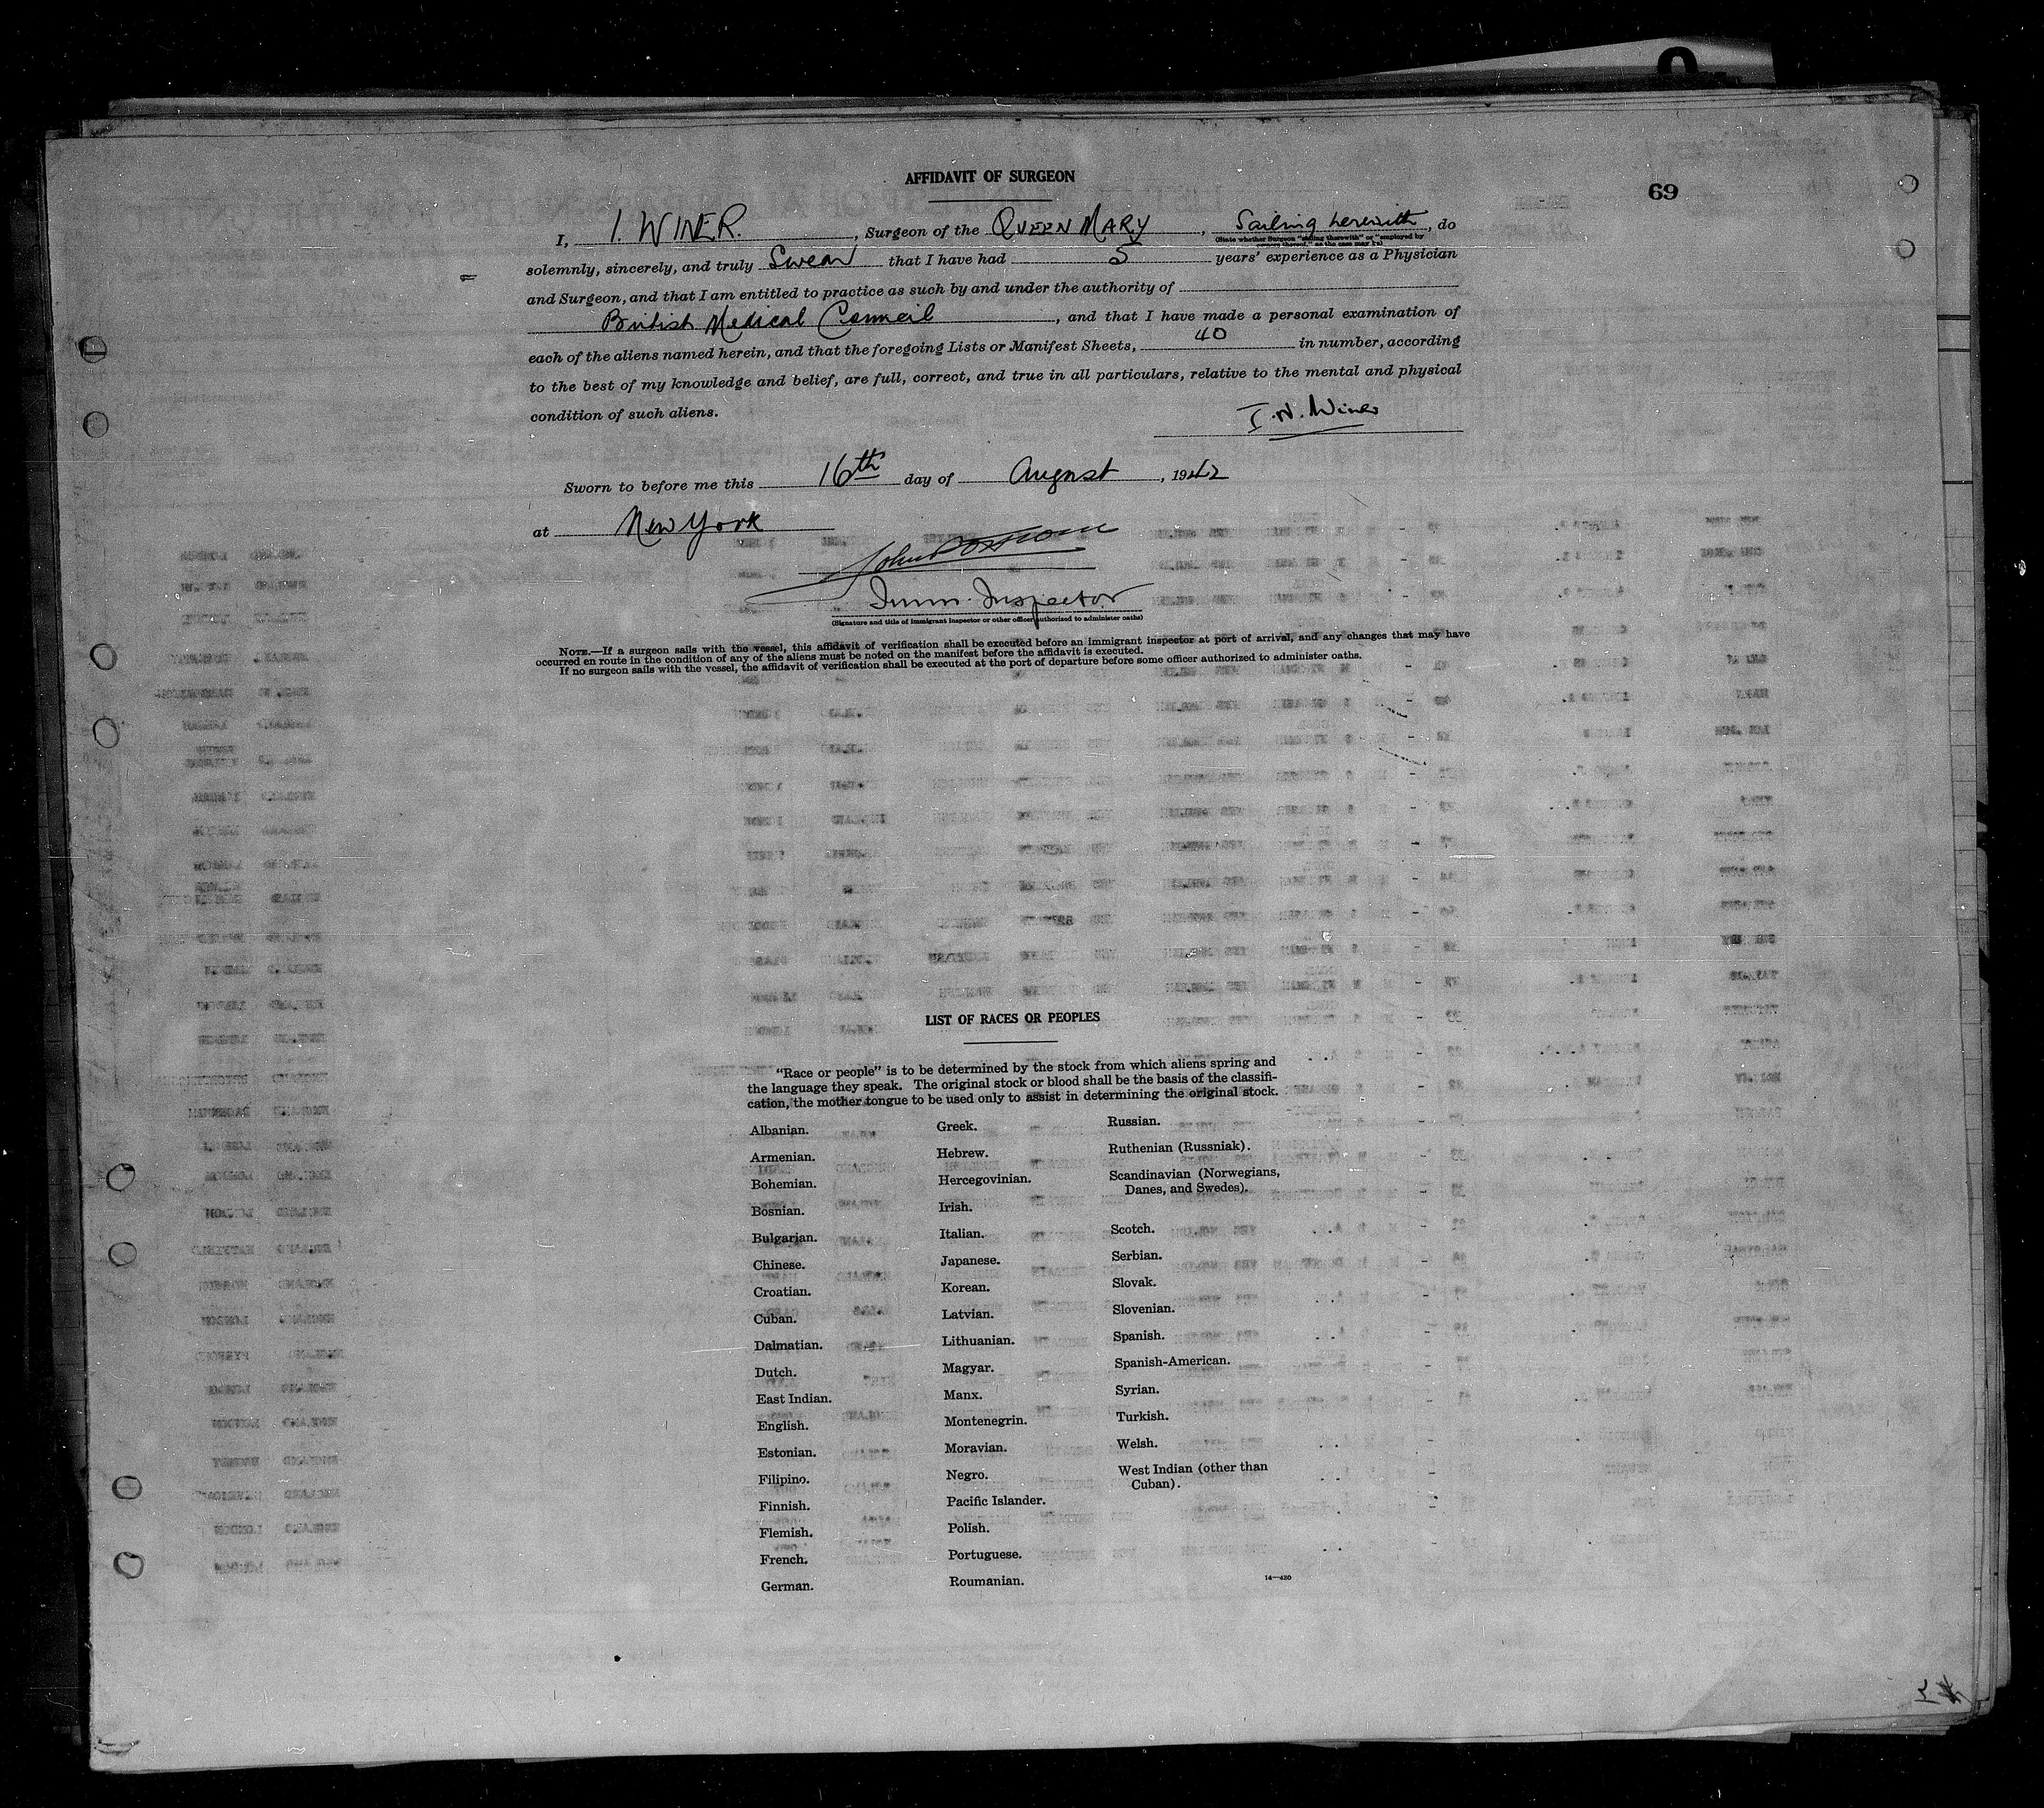 AFFIDAVIT OF SURGEON
69
I, I. WINER. , Surgeon of the QUEEN MARY , Sailing herewith , do
(State whether Surgeon "sailing therewith" or "employed by
owners thereof," as the case may be)
solemnly, sincerely, and truly Swear that I have had 5 years' experience as a Physician
and Surgeon, and that I am entitled to practice as such by and under the authority of
British Medical Council , and that I have made a personal examination of
each of the aliens named herein, and that the foregoing Lists or Manifest Sheets, 40 in number, according
to the best of my knowledge and belief, are full, correct, and true in all particulars, relative to the mental and physical
condition of such aliens.
I. N. Winer
Sworn to before me this 16th day of August , 1942
at New York
John
Imm. Inspector
(Signature and title of immigrant inspector or other officer authorized to administer oaths)
NOTE.—If a surgeon sails with the vessel, this affidavit of verification shall be executed before an immigrant inspector at port of arrival, and any changes that may have
occurred en route in the condition of any of the aliens must be noted on the manifest before the affidavit is executed.
If no surgeon sails with the vessel, the affidavit of verification shall be executed at the port of departure before some officer authorized to administer oaths.
LIST OF RACES OR PEOPLES
"Race or people" is to be determined by the stock from which aliens spring and
the language they speak. The original stock or blood shall be the basis of the classifi-
cation, the mother tongue to be used only to assist in determining the original stock.
Albanian.
Armenian.
Bohemian.
Bosnian.
Bulgarian.
Chinese.
Croatian.
Cuban.
Dalmatian.
Dutch.
East Indian.
English.
Estonian.
Filipino.
Finnish.
Flemish.
French.
German.
Greek.
Hebrew.
Hercegovinian.
Irish.
Italian.
Japanese.
Korean.
Latvian.
Lithuanian.
Magyar.
Manx.
Montenegrin.
Moravian.
Negro.
Pacific Islander.
Polish.
Portuguese.
Roumanian.
Russian.
Ruthenian (Russniak).
Scandinavian (Norwegians,
Danes, and Swedes).
Scotch.
Serbian.
Slovak.
Slovenian.
Spanish.
Spanish-American.
Syrian.
Turkish.
Welsh.
West Indian (other than
Cuban).
14—420